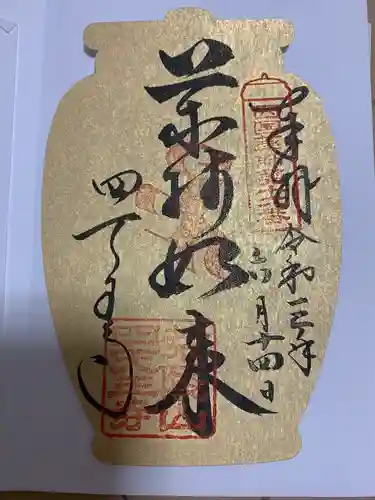 奉拝
令和三年
月十四日
薬師如来
四天王寺